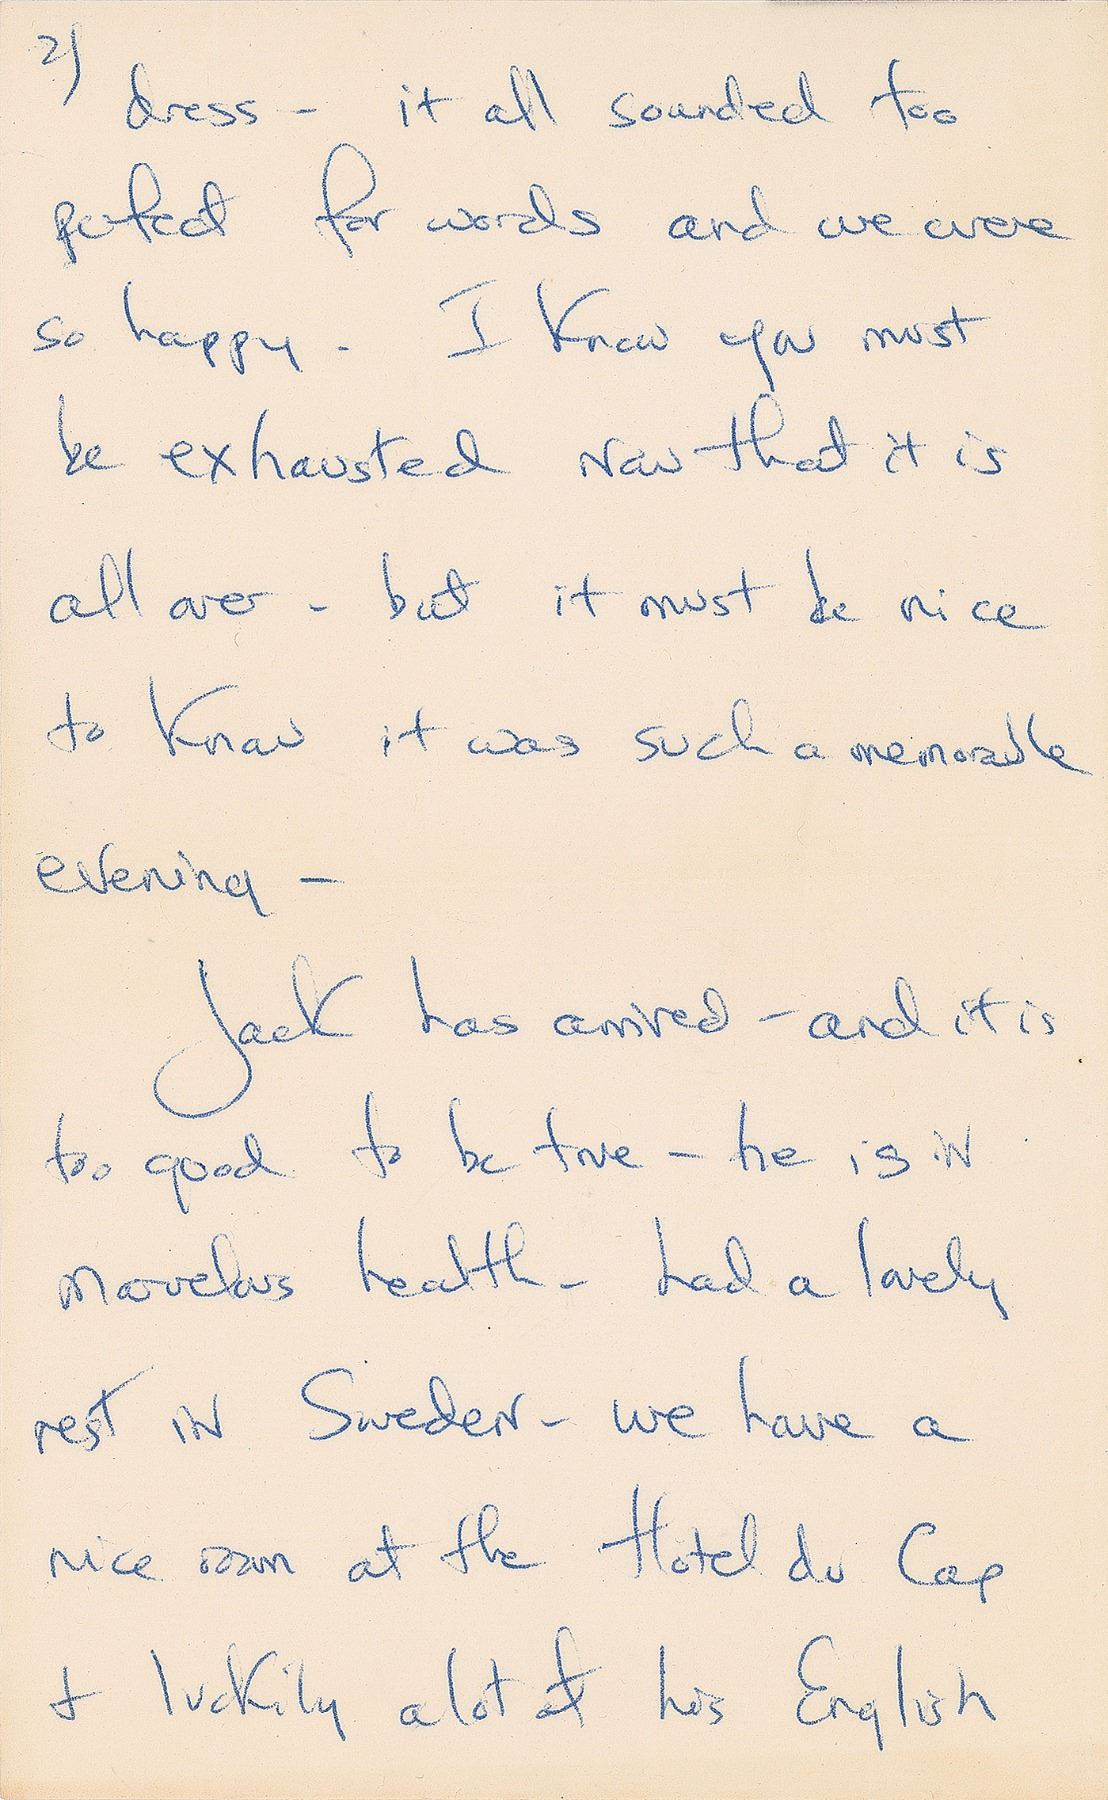 2)
dress - it all sounded too
perfect for words and we were
so happy. I Know you must
be exhausted now that it is
all over - but it must be nice
to Know it was such a memorable
evening -
Jack has arrived - and it is
too good to be true - he is in
marvelous health - had a lovely
rest in Sweden - we have a
nice room at the Hotel du Cap
+ luckily a lot of his English